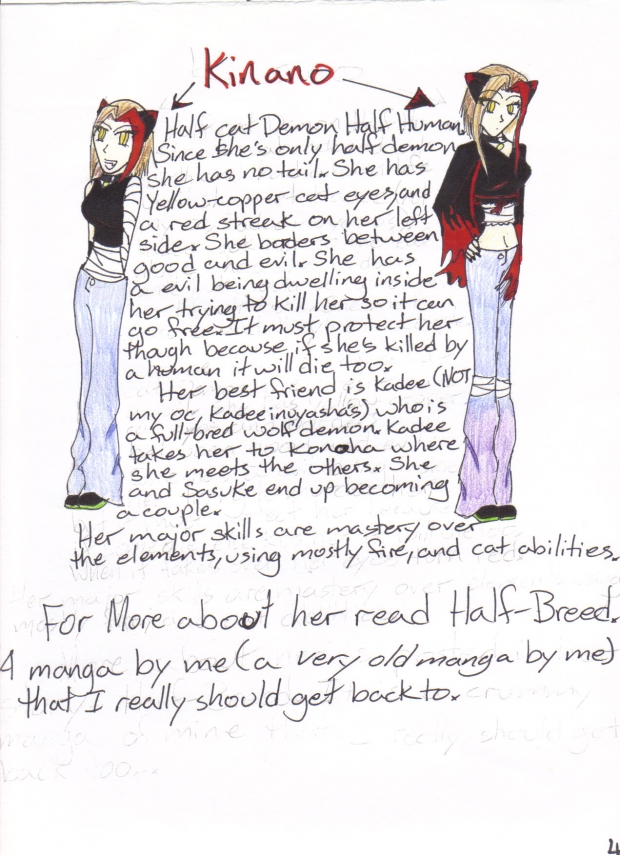 Kinano
Half cat Demon Half Human.
Since she's only half demon
she has no tail. She has
Yellow-copper cat eyes, and
a red streak on her left
side. She boders between
good and evil. She has
a evil being dwelling inside
her trying to kill her so it can
go free. It must protect her
though because if she's killed by
a human it will die too.
Her best friend is Kadee (NOT
my oc, Kadeeinuyasha's) who is
a full-bred wolf demon. Kadee
takes her to Konoha where
she meets the others. She
and Sasuke end up becoming
a couple.
Her major skills are mastery over
the elements, using mostly fire, and cat abilities.
For More about her read Half-Breed.
A manga by me (a very old manga by me)
that I really should get back to.
crummy
manga of mine
really should get
back
4